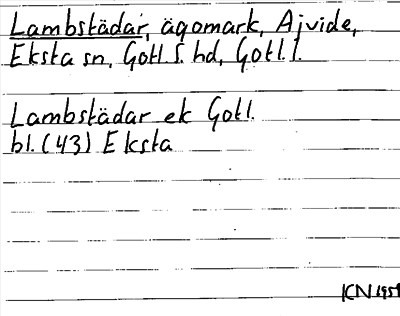 Lambstädar, ägomark, Ajvide,
Eksta sn, Gotl. S. hd, Gotl. l.
Lambstädar ek Gotl.
bl. (43) Eksta
KN 1951